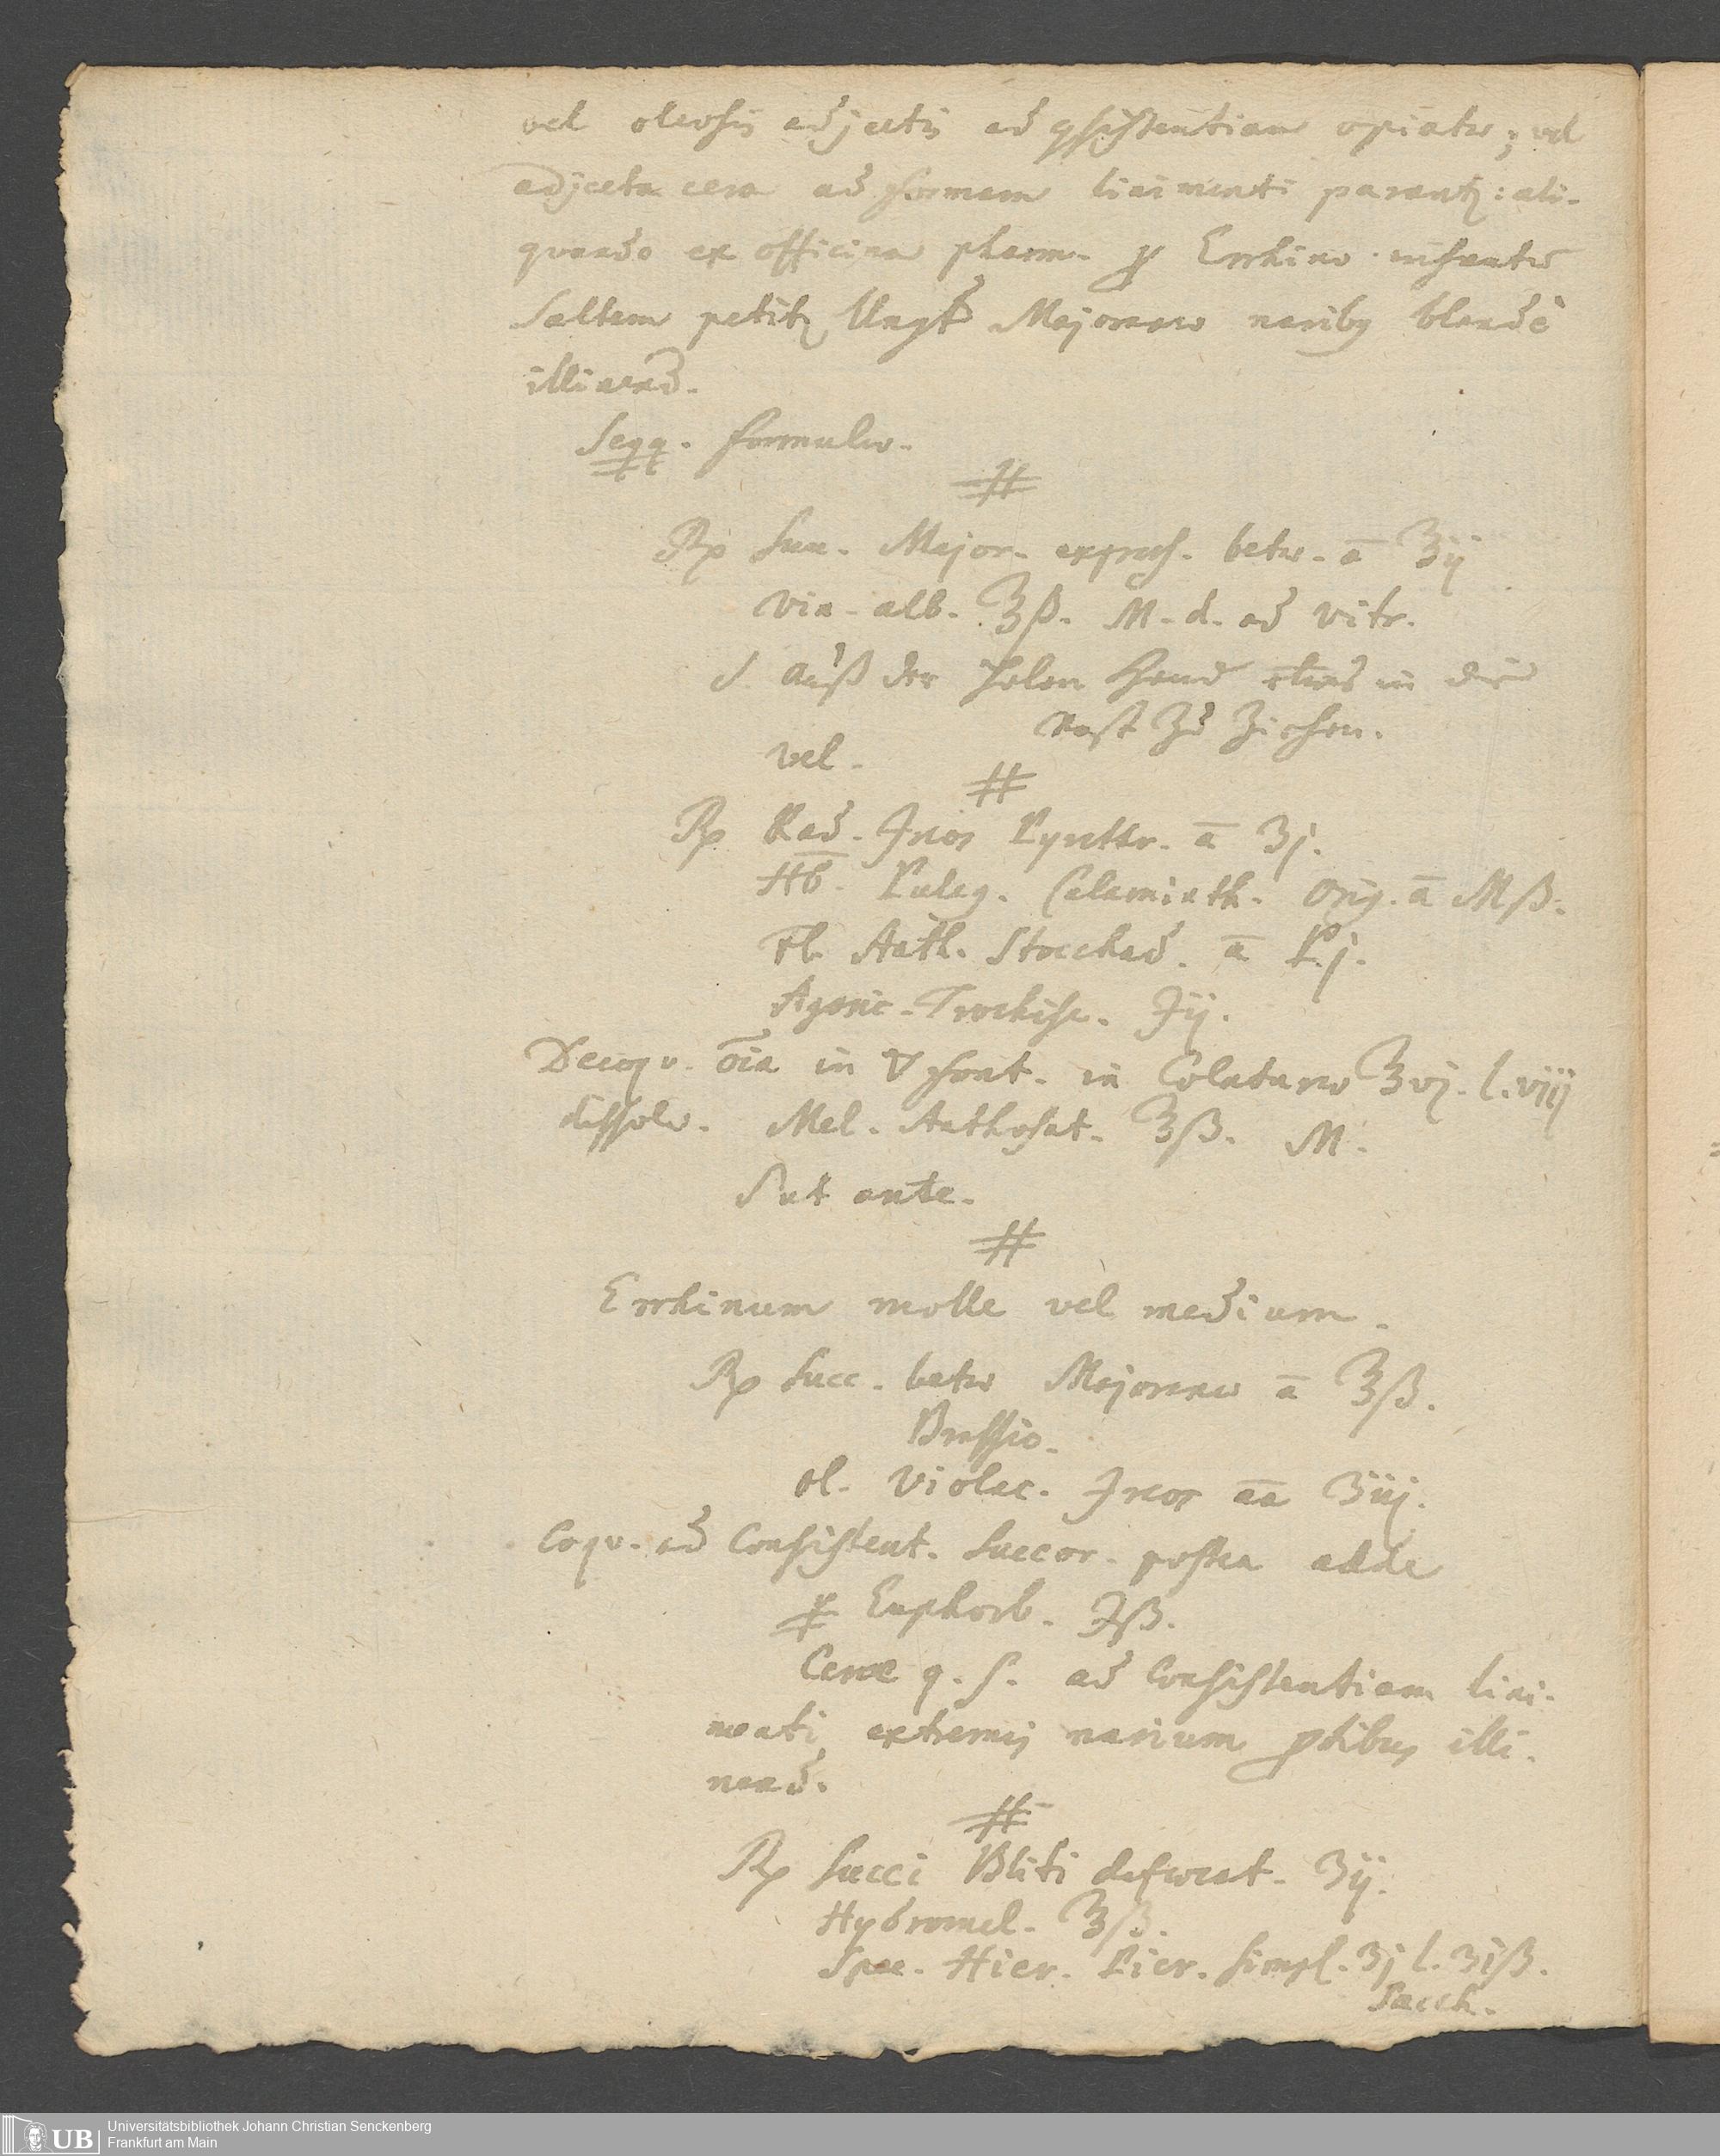 vel oleosis adjectis ad ꝯsistentiam opiatæ; vel
adjecta cera ad formam linimenti parantꝫ: ali-
quando ex officina pharm. ꝓ Errhino infantũ
Saltem petitꝫ Ungt̃ Majoranæ naribꝫ blandè
illinend.
Seqq. formulæ.
#
Rp Succ. Major. express. betæ. ā ℥ij
Vin. alb. ℥ß. M. d. ad vitr.
S. Auß der holen Hand etwas in die
Nase zu ziehen.
vel.
#
Rp Rad. Ireos Pyrethr. ā ʒj.
Hb. Puleg. Calaminth. Orig. ā Mß.
Fl. Anth. Stoechad. ā P.j.
Agaric. Trochisc. ℈ij.
Decoqv. oīa in ▽ font. in Colaturæ ℥vj. l. viij
dissolv. Mel. Anthosat. ℥ß. M.
S ut ante.
#
Errhinum molle vel medium.
Rp Succ. betæ Majoranæ ā ℥ß.
Brassic.
ol. Violac. Ireos āā ʒiij.
Coqv. ad Consistent. Succor. postea adde
Euphorb. ℈ß.
Ceræ q. s. ad Consistentiam lini-
menti extremis narium ꝑtibus illi-
nend.
#
Rp Succi Bliti depurat. ʒij.
Hydromel. ℥ß.
Spec. Hier. Picr. simpl. ʒj l. ʒiß.
Sacch.
Universitätsbibliothek Johann Christian Senckenberg
UB Frankfurt am Main